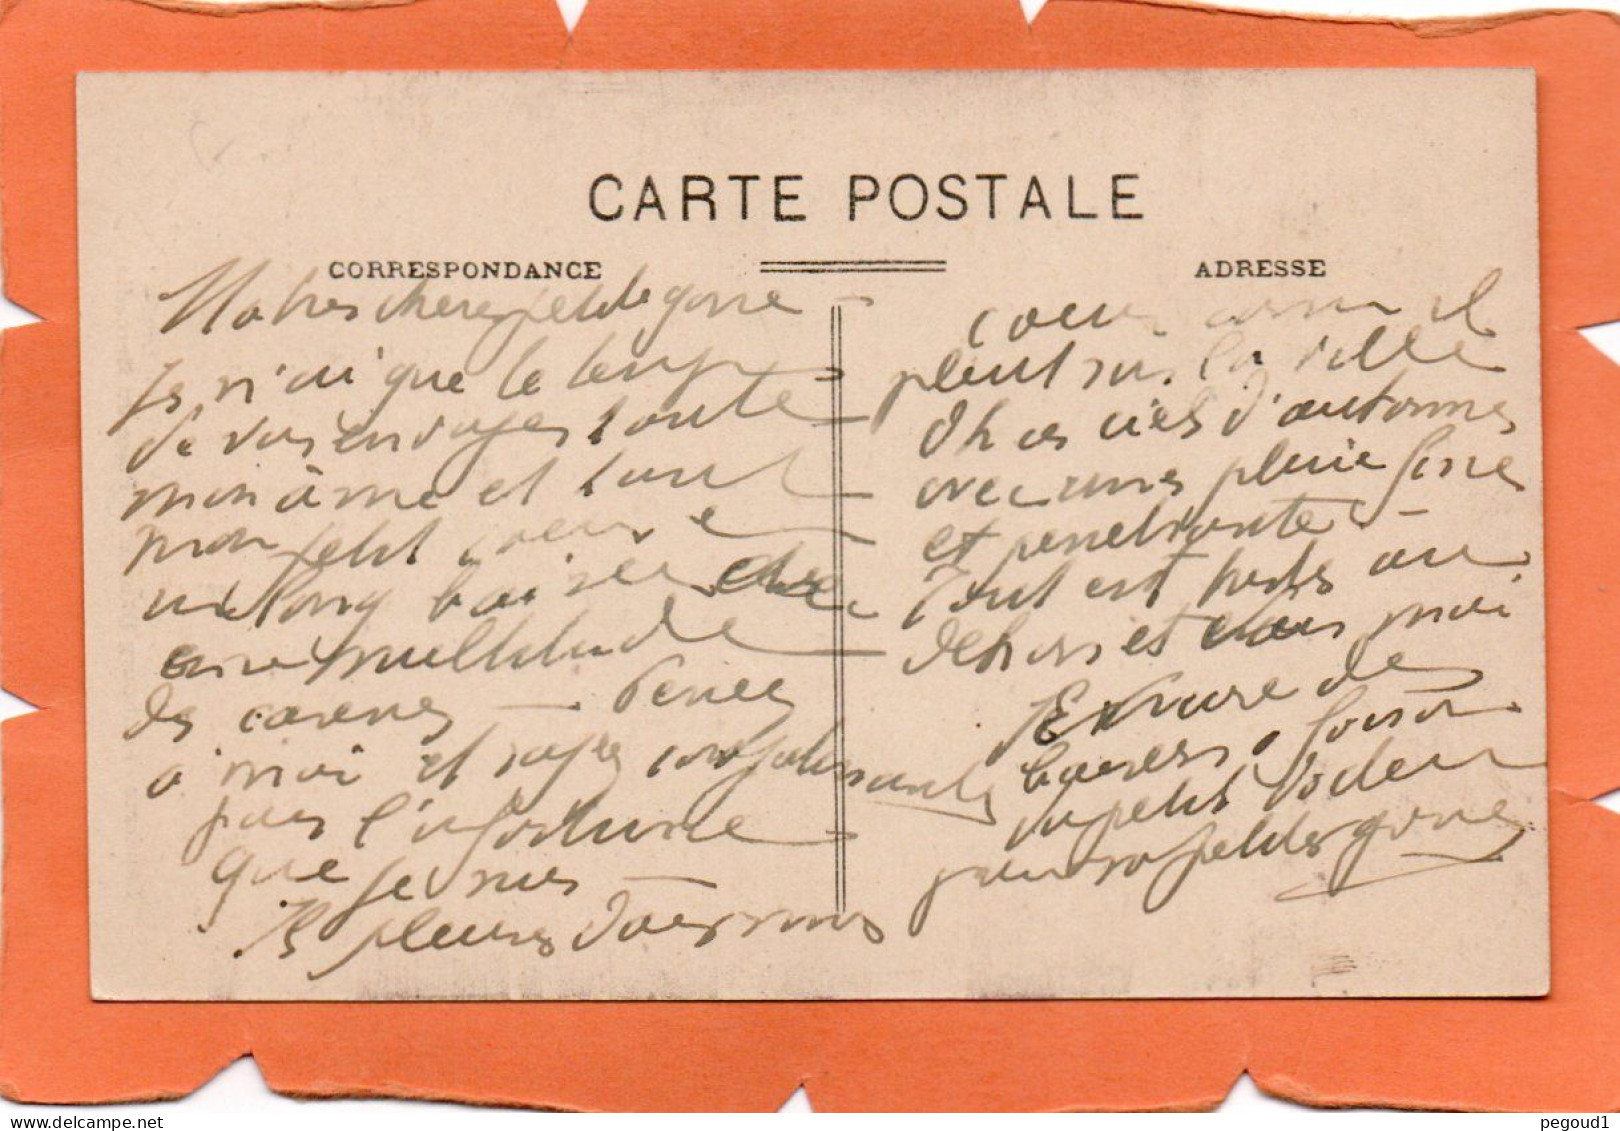 CARTE POSTALE
CORRESPONDANCE
ADRESSE
Ma très chère petite gosse
Je n'ai que le temps
de vous envoyer toute
mon âme et tout
mon petit coeur
un long baiser
multitude
de caresses — Pensez
à moi et soyez compatissante
pour l'infortune
que je suis —
Il pleure dans mon
coeur comme il
pleut sur la ville
Oh ces ciels d'automnes
avec une pluie fine
et penetrante —
Tout est triste au
dehors et chez moi
de
baisers
petit
petite gosse
pegoud1